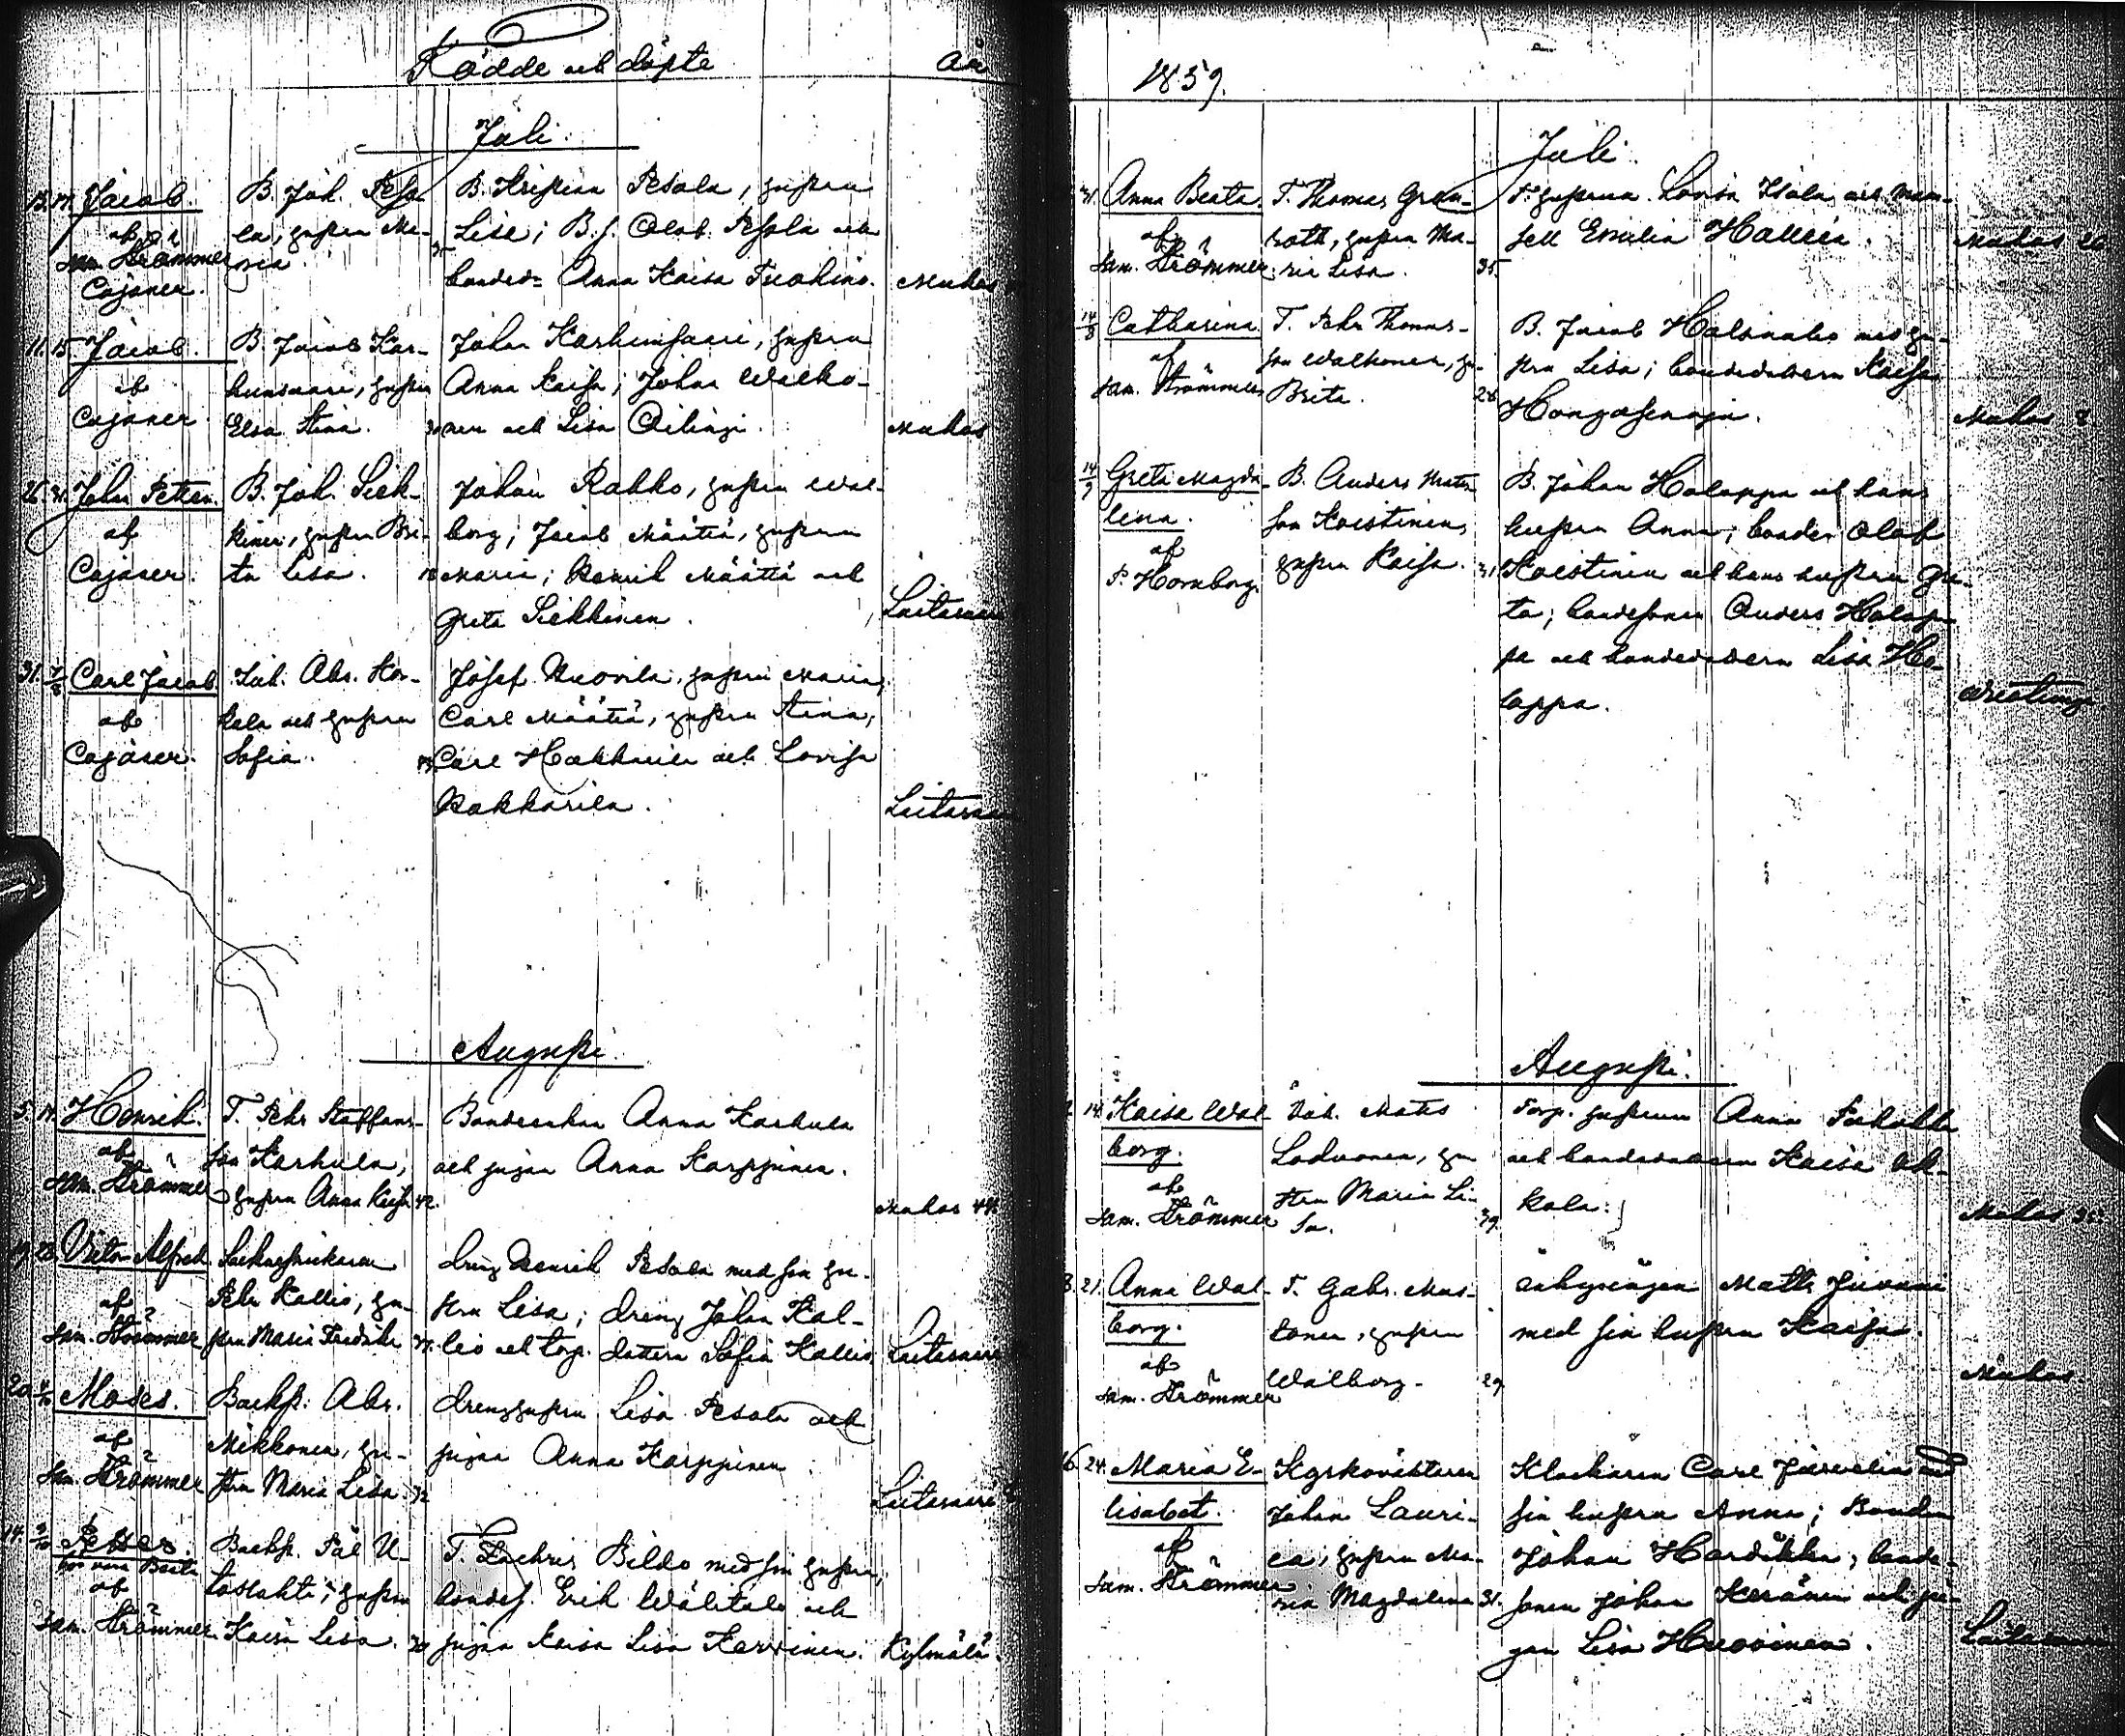 Födde och döpte
År
Juli.
13. 17. Jacob.
af
Sam. Strömmer
Cajaner.
B. Joh. Peso-
la, hustru Ma-
ria.
B. Kristian Pesola, hustru
Lisa; B.s. Olof Pesola och
bonded. Anna Kaisa Tuohino.
Muhos
11. 15. Jacob.
af
Cajaner
B. Jacob Kar-
hunsaari, hustru
Elsa Stina.
Johan Karhunsaari, hustru
Anna Kaisa; Johan Walko-
nen och Lisa Oilingi.
Muhos
26. 31. Johan Petter.
af
Cajaner.
B. Joh. Siek-
kinen, hustru Bri-
ta Lisa.
Johan Rahko, hustru Wal-
borg; Jacob Määttä, hustru
Maria; Henrik Määttä och
Greta Siekkinen.
Laitasaari
31. 7/8 Carl Jacob
af
Cajaner.
Joh. Abr. Kor-
kala och hustru
Sofia.
Josef Kuovila, hustru Maria;
Carl Määttä, hustru Stina;
Carl Hakkarila och Lovisa
Hakkarila.
Laitasaari
Augusti
5. 14. Henrik.
af
Sam. Strömmer
T. Pehr Staffans-
son Karhula,
hustru Anna Kaisa 42.
Bondeenkan Anna Karhula
och pigan Anna Karppinen.
Muhos 44.
19. 28. Victor Alfred.
af
Sam. Strömmer
Pehr Kallio, hu-
stru Maria Fredrika
Dreng Henrik Pesola med sin hu-
stru Lisa; dreng Johan Kal-
lio och torp. dottern Sofia Kallio.
Laitasaari
20. Moses.
af
Sam. Strömmer
Backst. Abr.
Mikkonen, hu-
stru Maria Lisa. 32
Drenghustrun Lisa Pesola och
pigan Anna Karppinen
Laitasaari
14. Petter.
af
Sam. Strömmer.
Backst. Pål U-
losalahti; hustru
Kaisa Lisa.
T. Zachris Bildo med sin hustru;
bondes. Erik Wälitalo och
pigan Kaisa Lisa Karvinen.
Kylmälä.
1859.
Juli.
31. Anna Beata
af
Sam. Strömmer
T. Thomas Gran-
roth, hustru Ma-
ria Lisa. 35
T. hustrun Lovisa Isola och mam-
sell Emilia Hallén.
Muhos 20
14/8 Catharina
af
Sam. Strömmer
T. Pehr Thomas-
son Walkonen, hu-
Brita. 28
B. Jacob Halonaho med hu-
stru Lisa; bondedottern Kaisa
Hongasenoja.
Muhos
14/9 Greta Magda-
lena.
af
P. Hornborg.
B. Anders Mats-
son Koistinen,
hustru Kaisa. 31
B. Johan Holappa och hans
hustru Anna; bonden Olof
Koistinen och hans hustru Gre-
ta; bondesonen Anders Holap-
pa och bondedottern Lisa Ho-
lappa.
Augusti.
14. Kaisa Wal-
borg.
af
Sam. Strömmer
Inh. Mats
Loduonen, hu-
stru Maria Li-
sa. 39.
Torp. hustrun Anna
och bondedottern Kaisa Ok-
kola.
Muhos 35.
21. Anna Wal-
borg.
af
Sam. Strömmer
T. Gabr. Mus-
tonen, hustru
Walborg. 29.
Matts Juvani
med sin hustru Kaisa.
Muhos
16. 24. Maria E-
lisabet.
af
Sam. Strömmer
Kyrkoväktaren
Johan Lauri-
ea, hustru Ma-
ria Magdalena 31.
Klockaren Carl Järvelin med
sin hustru Anna; Bonden
Johan Hardikka; bonde-
sonen Johan Keränen och pi-
gan Lisa Huovinen.
Laitasaari